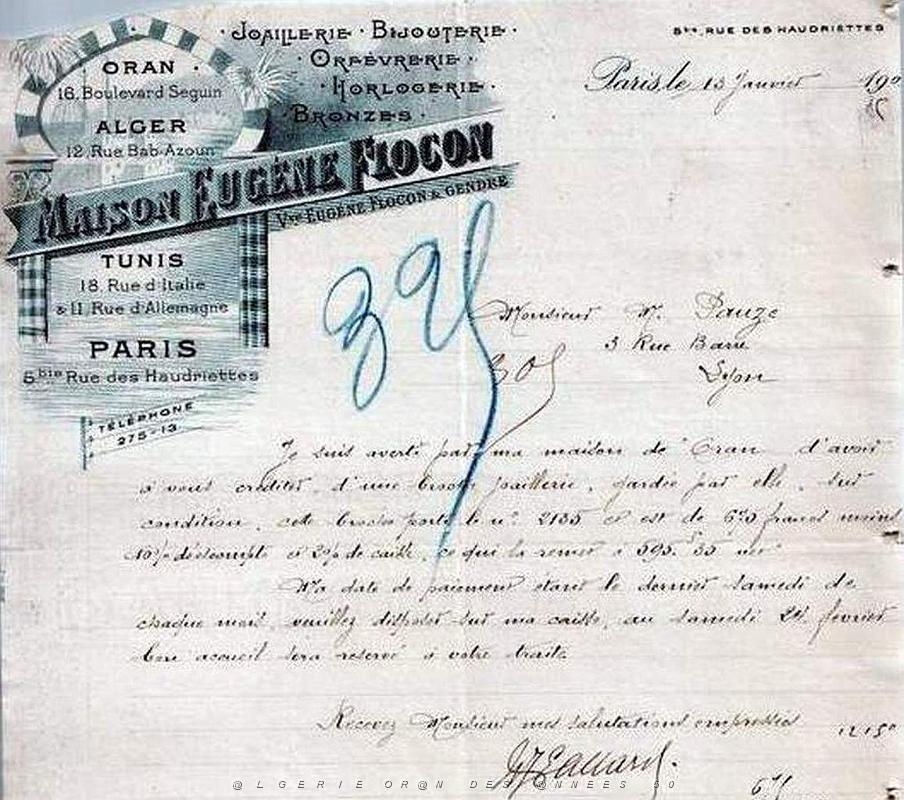 ORAN
16. Boulevard Seguin
ALGER
12, Rue Bab-Azoun
JOAILLERIE · BIJOUTERIE ·
ORFÈVRERIE ·
HORLOGERIE ·
BRONZES ·
5bis, RUE DES HAUDRIETTES
Paris, le 13 Janvier 190
MAISON EUGÈNE FLOCON
Vve EUGÈNE FLOCON & GENDRE
TUNIS
18. Rue d'Italie
& 11, Rue d'Allemagne
PARIS
5bis Rue des Haudriettes
TÉLÉPHONE
275-13
Monsieur M. Pauze
3 Rue Barre
Lyon
Je suis averti par ma maison de Oran d'avoir
à vous créditer, d'une broche joaillerie, gardée par elle, sur
condition, cette broche porte le n° 2135 et est de 675 francs moins
10% d'escompte et 2% de caisse, ce qui la remet à 595.35 net
Ma date de paiement étant le dernier samedi de
chaque mois, veuillez disposer sur ma caisse, au samedi 24 février
bon accueil sera reservé à votre traite
Recevez Monsieur mes salutations empressées
@LGERIE OR@N DES @NNEES 50